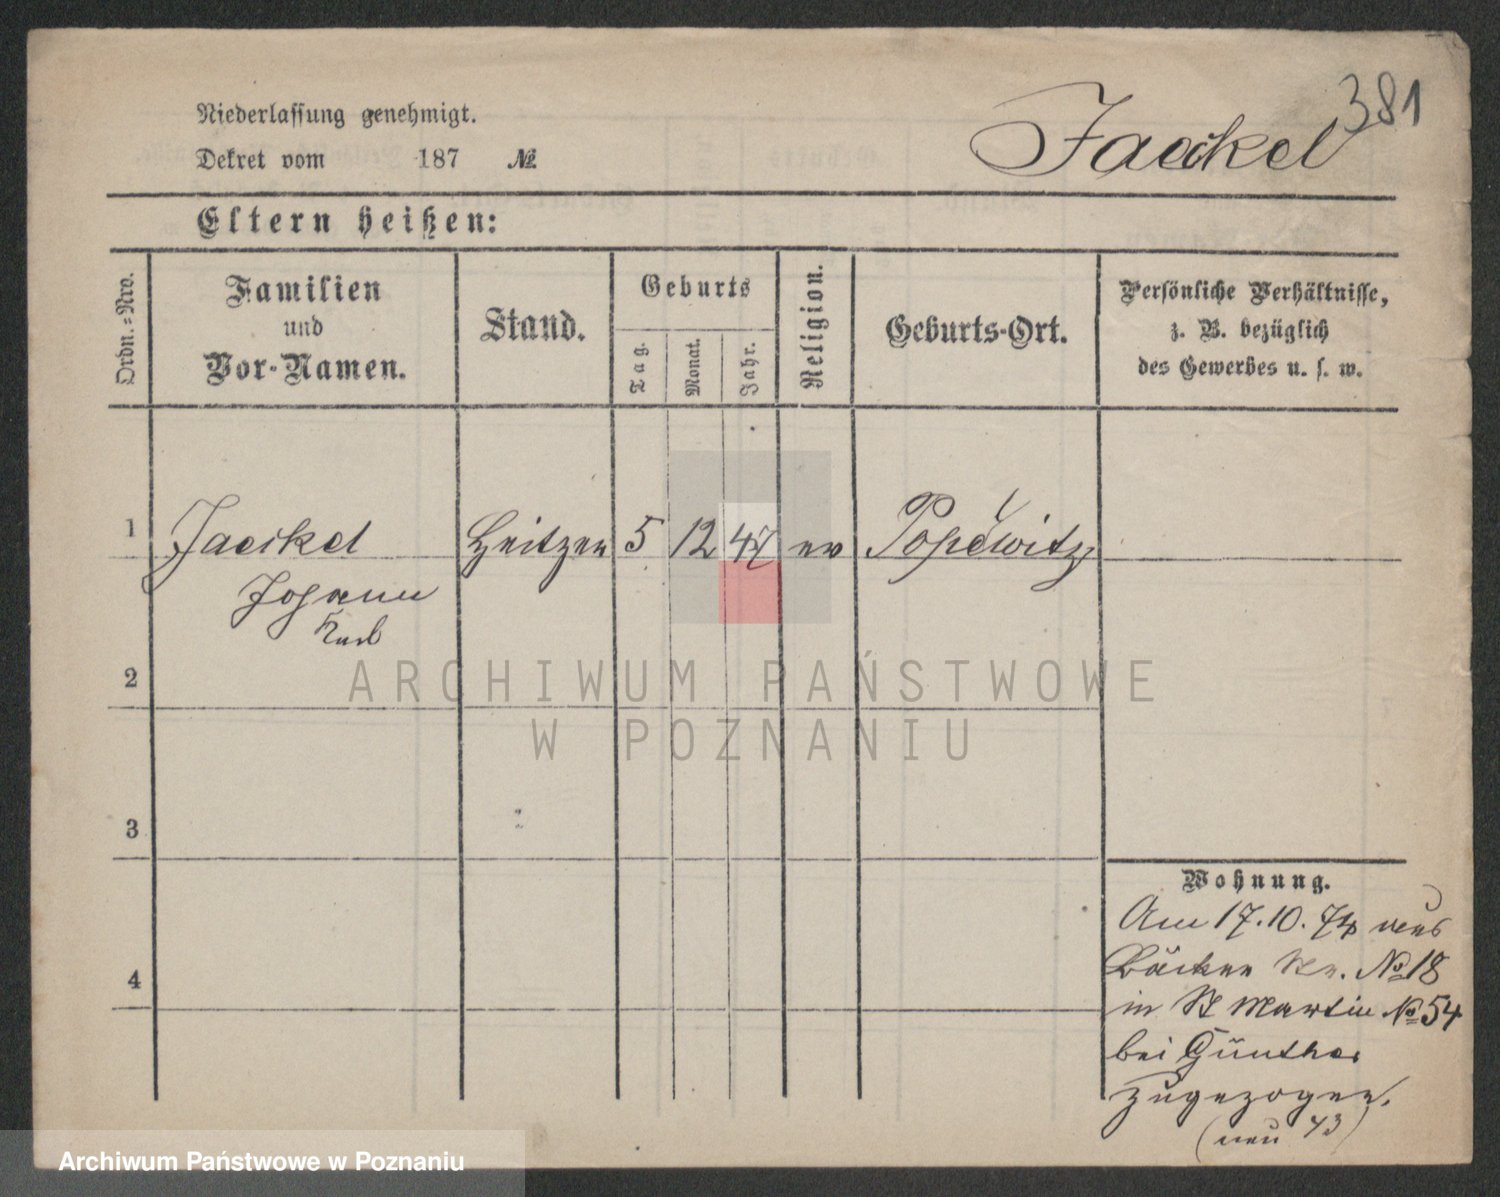 381
Niederlassung genehmigt.
Jaeckel
Dekret vom 187 №
Eltern heißen:
Ordn.=Nro.
Familien
und
Vor-Namen.
Stand.
Geburts
Tag.
Monat.
Jahr.
Religion.
Geburts-Ort.
Persönliche Verhältnisse,
z. B. bezüglich
des Gewerbes u. s. w.
1 Jaeckel Heitzer 5 12 47 ev Popowitz
Johann
Karl
2
ARCHIWUM PAŃSTWOWE
W POZNANIU
3
4
Wohnung.
Am 17.10.74 aus
Bäcker Str. № 18
in St Martin № 54
bei Günther
zugezogen.
(neu 43)
Archiwum Państwowe w Poznaniu